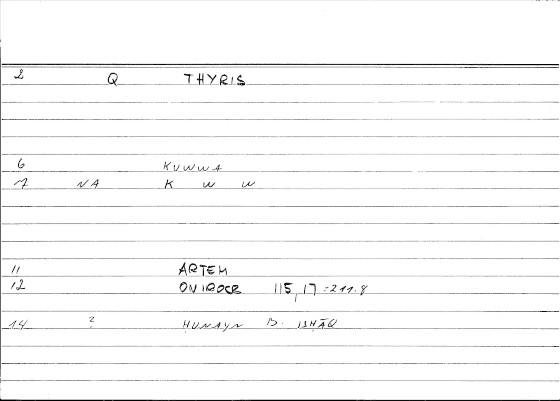 2 Q THYRIS
6 KUWWA
7 NA K W W
11 ARTEM
12 ONIROCR 115,17=211.8
14 ? ḤUNAYN B. ISḤĀQ